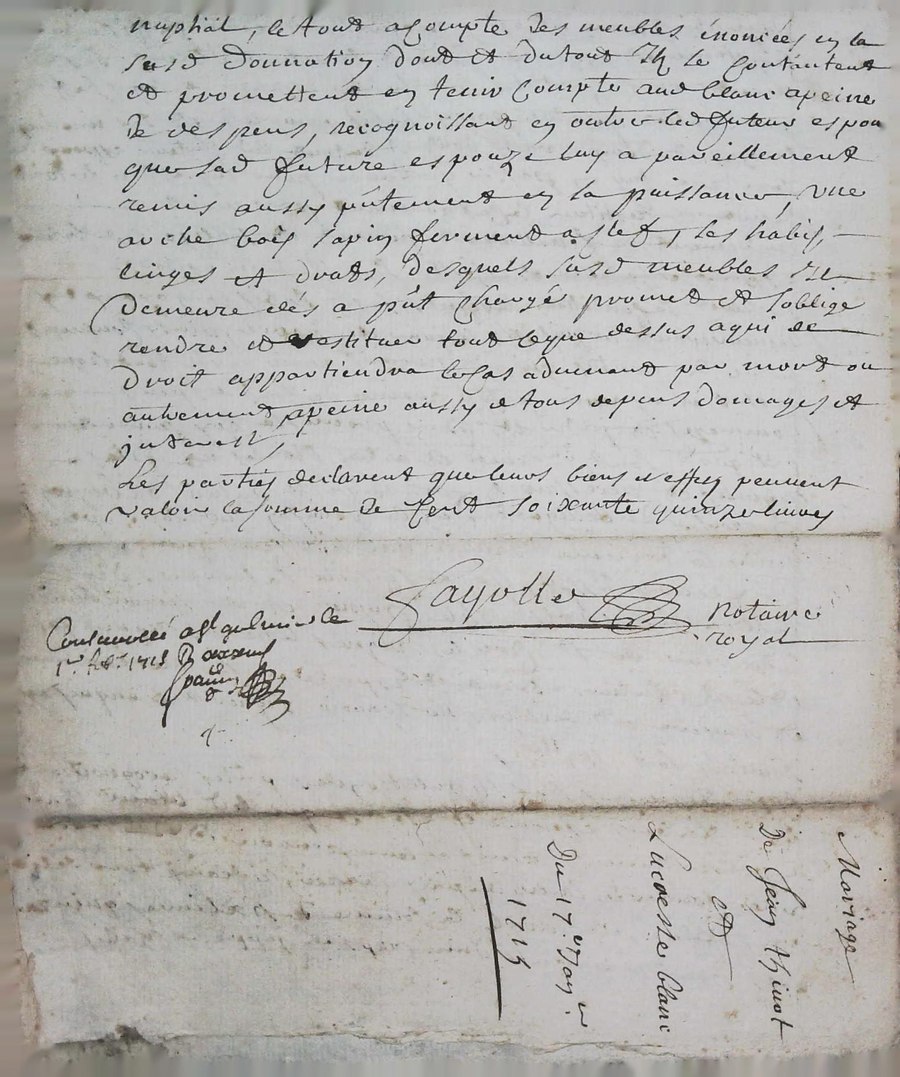 nuptial, le tout acompte des meubles énoncées en la
susd donnation dont et du tout Ilz se contentent
et promettent en tenir compte aud blanc apeine
de despens, recognoissant en outre led futeur espou
que sad future espouze luy a pareillement
remis aussy pñtement en sa puissance, une
arche bois sapin fermant a clef, ses habis,
linges et draps, desquels susd meubles Il
demeure dés a pñt chargé promet et soblige
rendre et restituer tout ceque dessus aqui de
droit appartiendra le cas advenant par mort ou
autrement apeine aussy de tous depens domages et
interest,
Les parties declarent que leurs biens et effes peuvent
valoir la somme de Cent soixante quinze livres
Fayolle notaire
royal
Controuollé a st galmier le
1er feb. 1715
Mariage
De Jean thinot
et
Lucresse blanc
Du 17e Janv.
1715